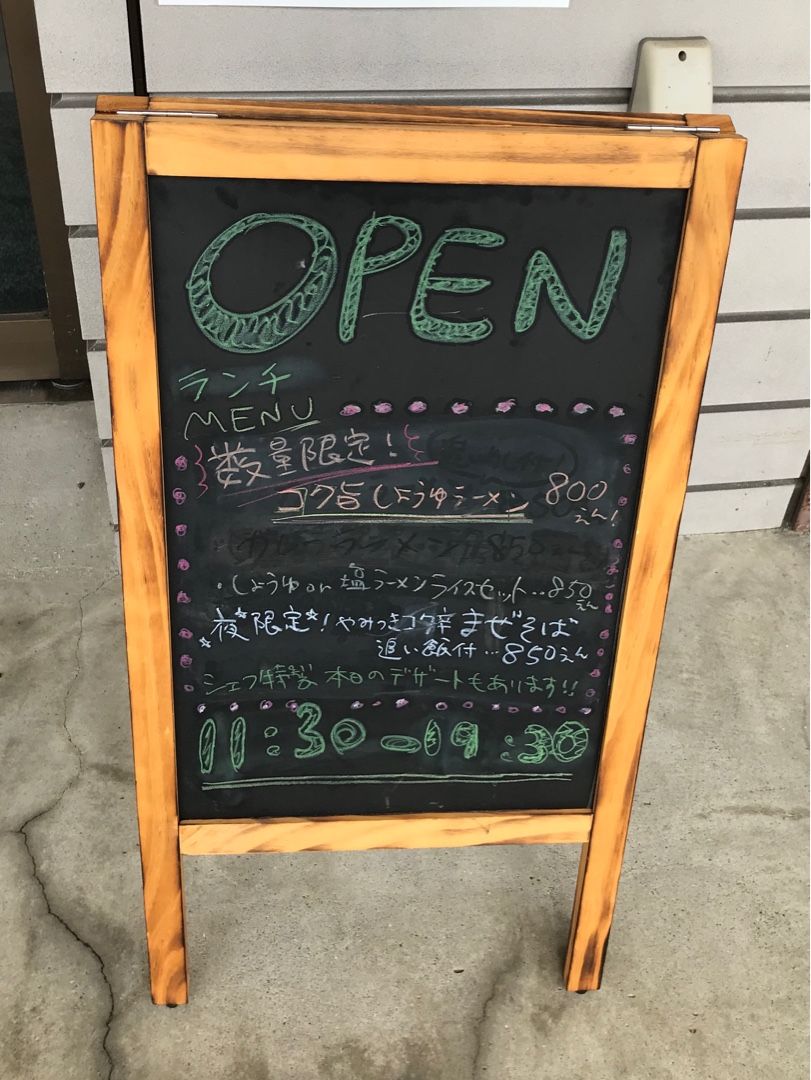 OPEN
ランチ
MENU
数量限定!
コク旨しょうゆラーメン 800
えん!
カレーラーメン 850えん
・しょうゆor塩ラーメンライスセット‥850
えん
☆夜☆限定☆!やみつきコク辛まぜそば
追い飯付…850えん
シェフ特製 本日のデザートもあります!!
11:30-19:30